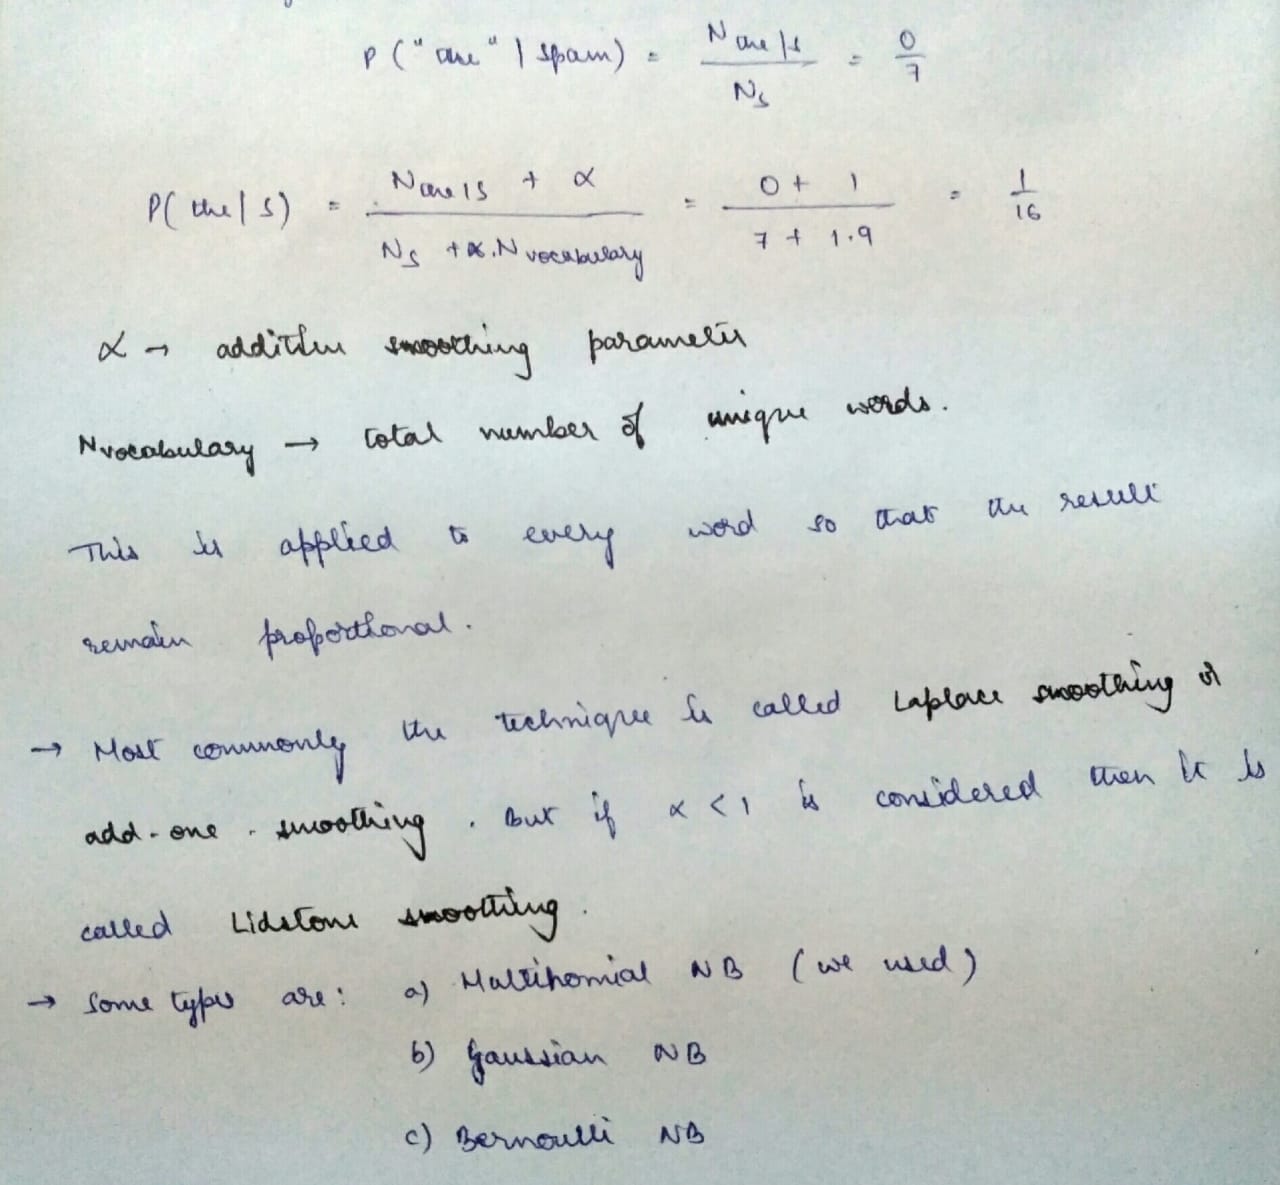 P ("are" | spam) = N are|s / N s = 0 / 7
P( the | s) = N are|s + α / N s + α.N vocabulary = 0 + 1 / 7 + 1.9 = 1 / 16
α → additive smoothing parameter
N vocabulary → total number of unique words.
This is applied to every word so that the result
remain proportional.
→ Most commonly the technique is called Laplace smoothing or
add-one-smoothing. But if α < 1 is considered then it is
called Lidstone smoothing.
→ Some types are: a) Multinomial NB (we used)
b) Gaussian NB
c) Bernoulli NB